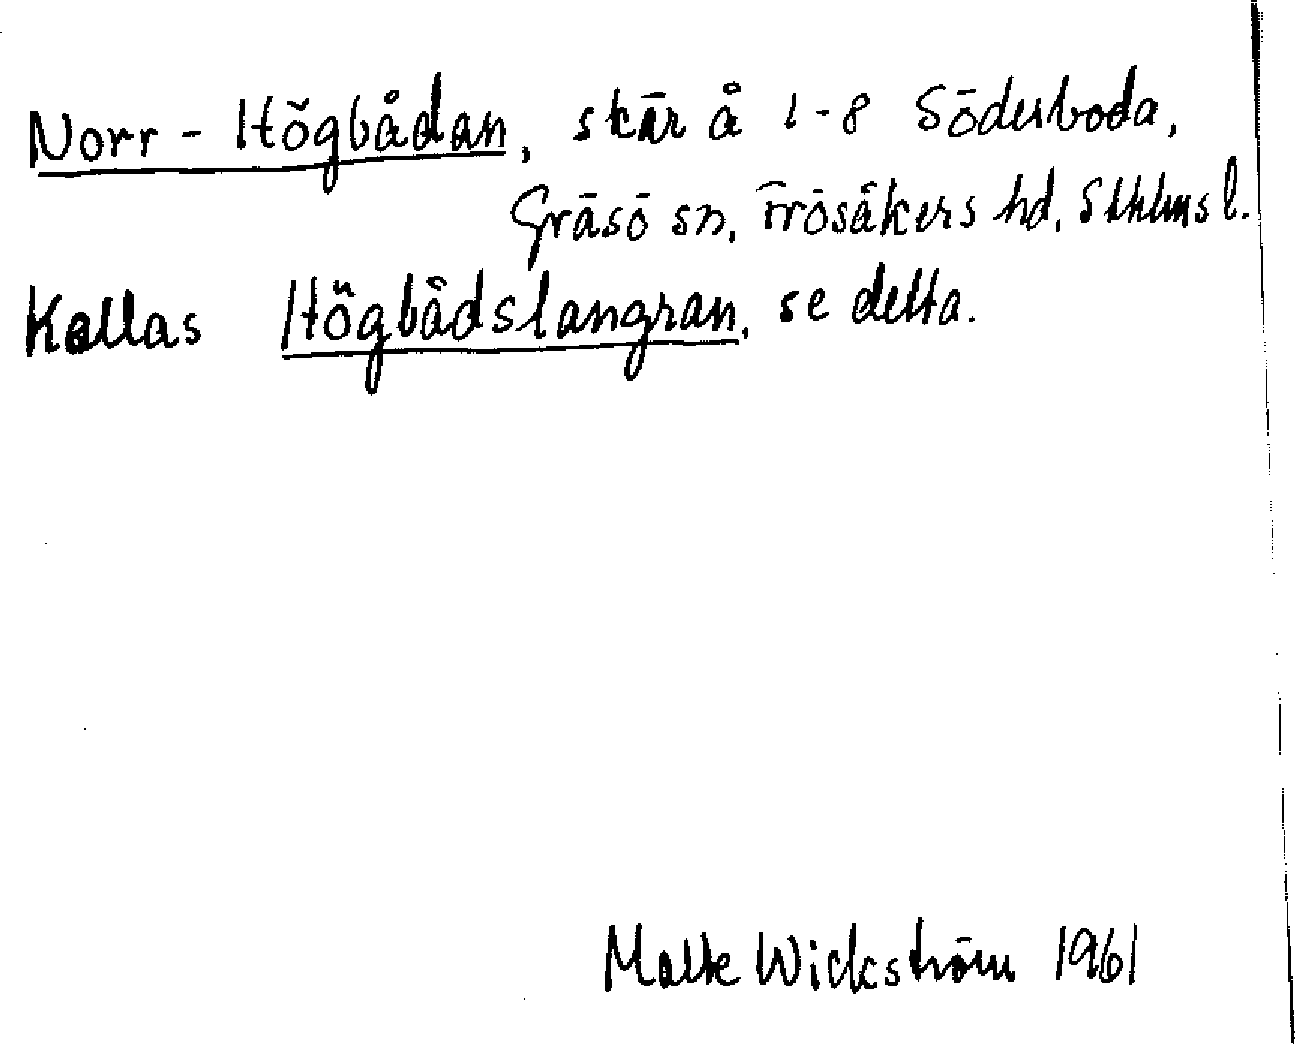 Norr-Högbådan, skär å 1-8 Söderboda,
Gräsö sn, Frösåkers hd, Sthlms l.
Kallas Högbådslangran, se detta.
Malte Wickström 1961